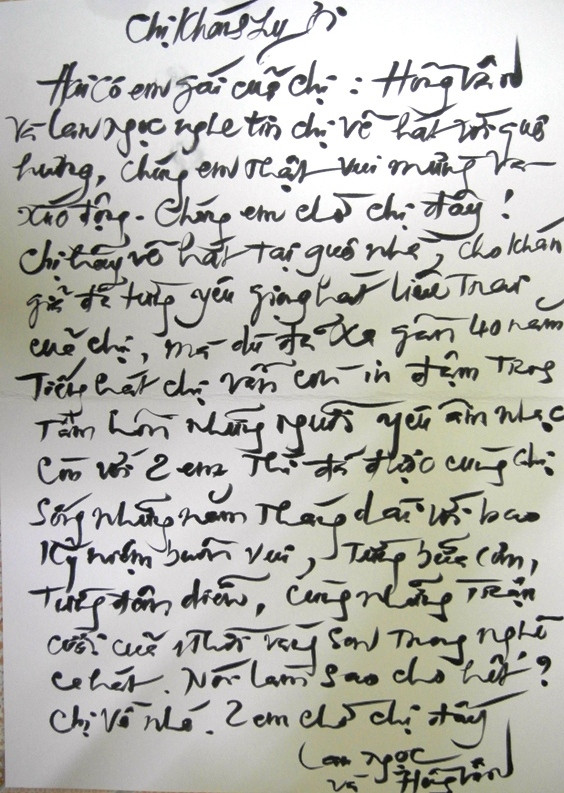 Chị Khánh Ly ơi
Hai cô em gái của chị : Hồng Vân
và Lan Ngọc nghe tin chị về hát với quê
hương, chúng em thật vui mừng và
xúc động. Chúng em chờ chị đây !
Chị hãy về hát tại quê nhé, cho khán
giả đã từng yêu giọng hát liêu trai
của chị, mà dù đã xa gần 40 năm
Tiếng hát chị vẫn còn in đậm trong
Tâm hồn những người yêu âm nhạc
Còn với 2 em Thì đã được cùng chị
Sống những năm tháng dài với bao
kỷ niệm buồn vui, từng bữa cơm,
từng đêm diễn, cùng những trận
cười của thời vàng son trong nghề
ca hát. Nói làm sao cho hết ?
Chị về nhé. 2 em chờ chị đây
Lan Ngọc
và Hồng Vân